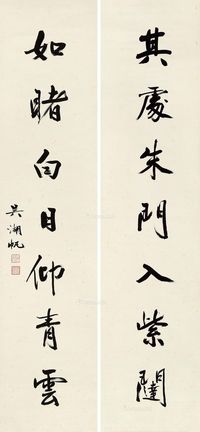 其處朱門入紫闥
如睹白日仰青雲
吳湖帆